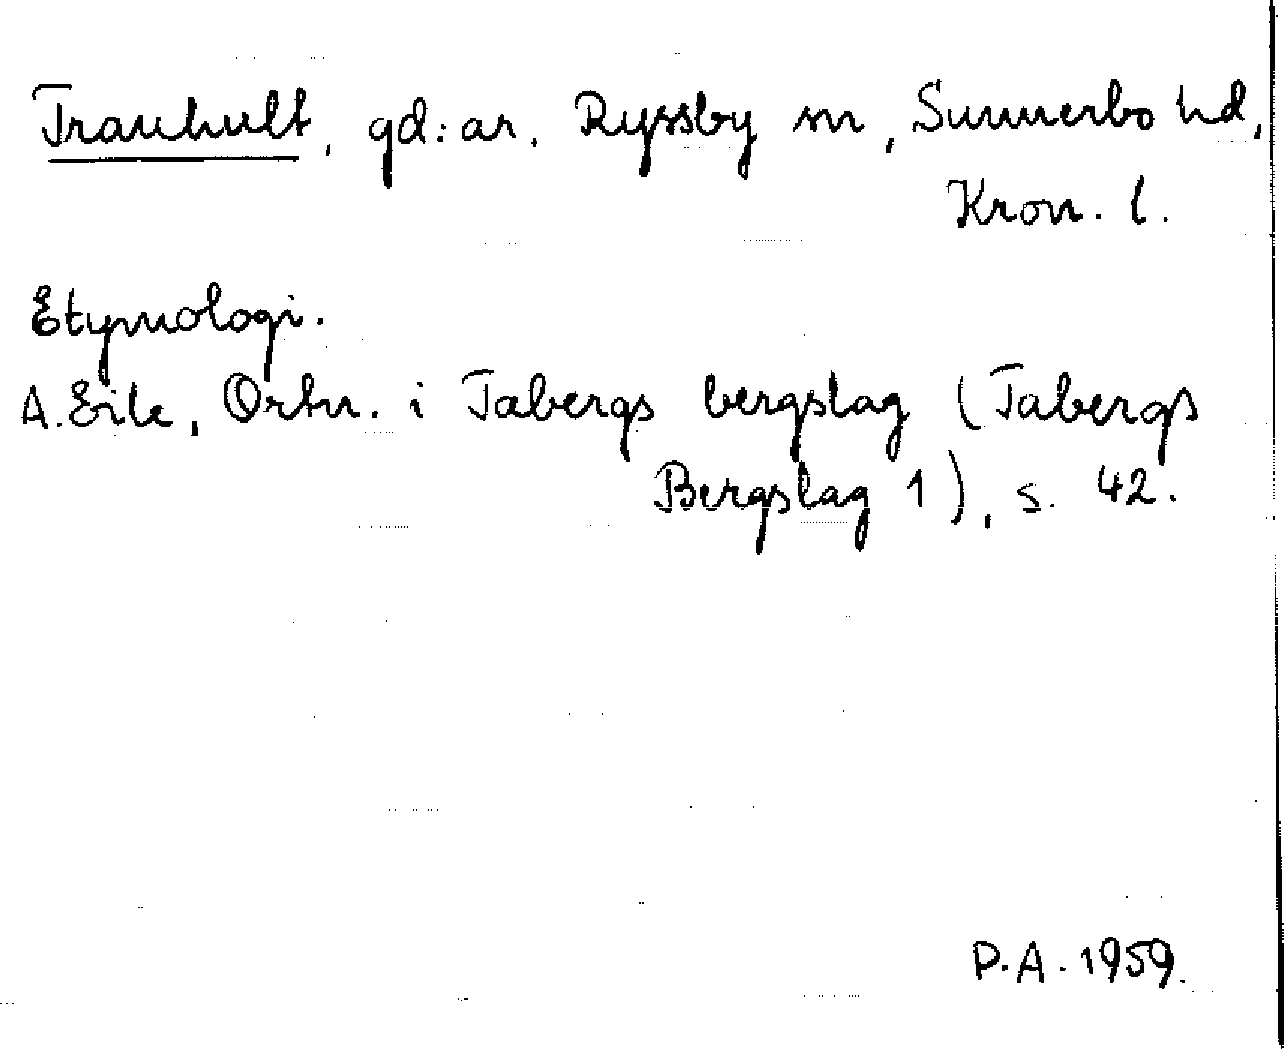 Tranhult, gd:ar. Ryssby sn, Sunnerbo hd,
Kron. l.
Etymologi.
A. Eile, Ortn. i Tabergs bergslag (Tabergs
Bergslag 1), s. 42.
P.A. 1959.